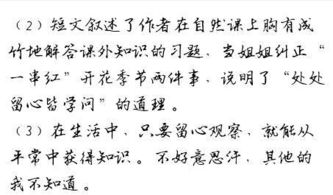 （2）短文叙述了作者在自然课上胸有成
竹地解答课外知识的习题、当姐姐纠正“
一串红”开花季节两件事，说明了“处处
留心皆学问”的道理。
（3）在生活中，只要留心观察，就能从
平常中获得知识。不好意思汗，其他的
我不知道。